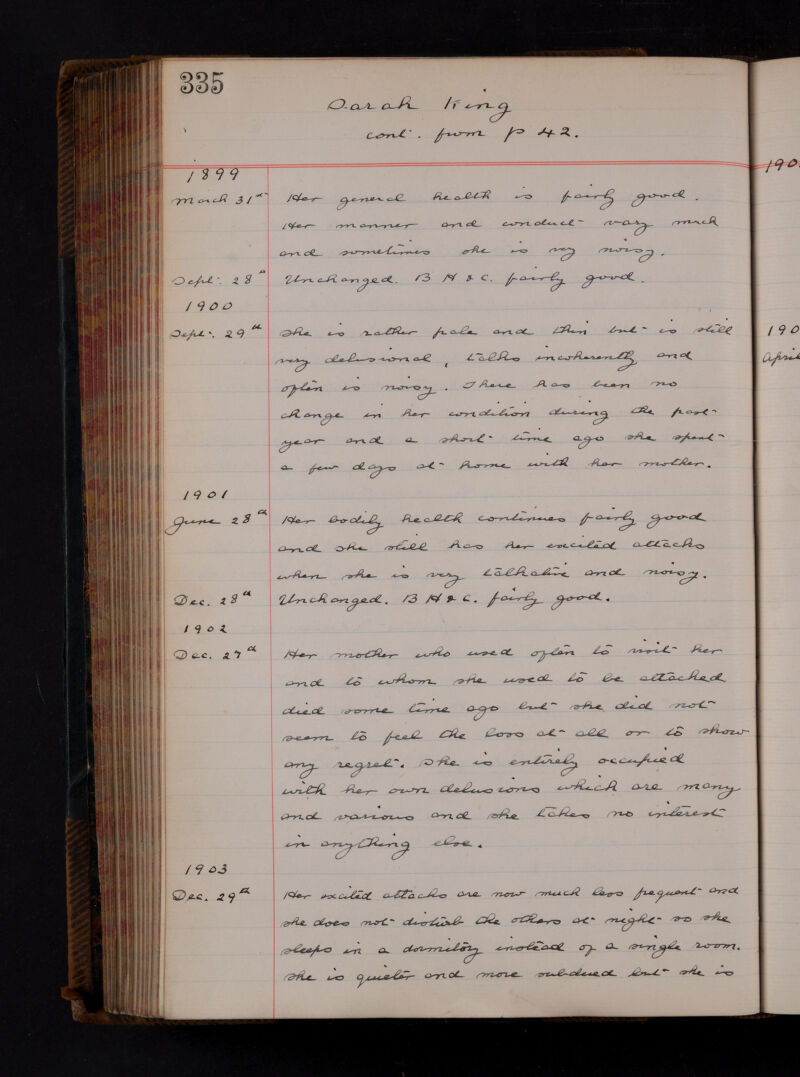 335
Sarah King
cont. from p 42.
1899
March 31st Her general health is fairly good.
Her manner and conduct vary much
and sometimes she is very noisy.
Sept. 28th Unchanged. B H & C. fairly good.
1900
Sept. 29th She is rather pale and thin but is still
very delusional, talks incoherently and
often is noisy. There has been no
change in her condition during the past
year and a short time ago she spent
a few days at home with her mother.
1901
June 28th Her bodily health continues fairly good
and she still has her excited attacks
when she is very talkative and noisy.
Dec. 28th Unchanged. B H & C. fairly good.
1902
Dec. 27th Her mother who used often to visit her
and to whom she used to be attached
died some time ago but she did not
seem to feel the loss at all or to show
any regret. She is entirely occupied
with her own delusions which are many
and various and she takes no interest
in anything else.
1903
Dec. 29th Her excited attacks are now much less frequent and
she does not disturb the others at night so she
sleeps in a dormitory instead of a single room.
She is quieter and more subdued but she is
190
190
April